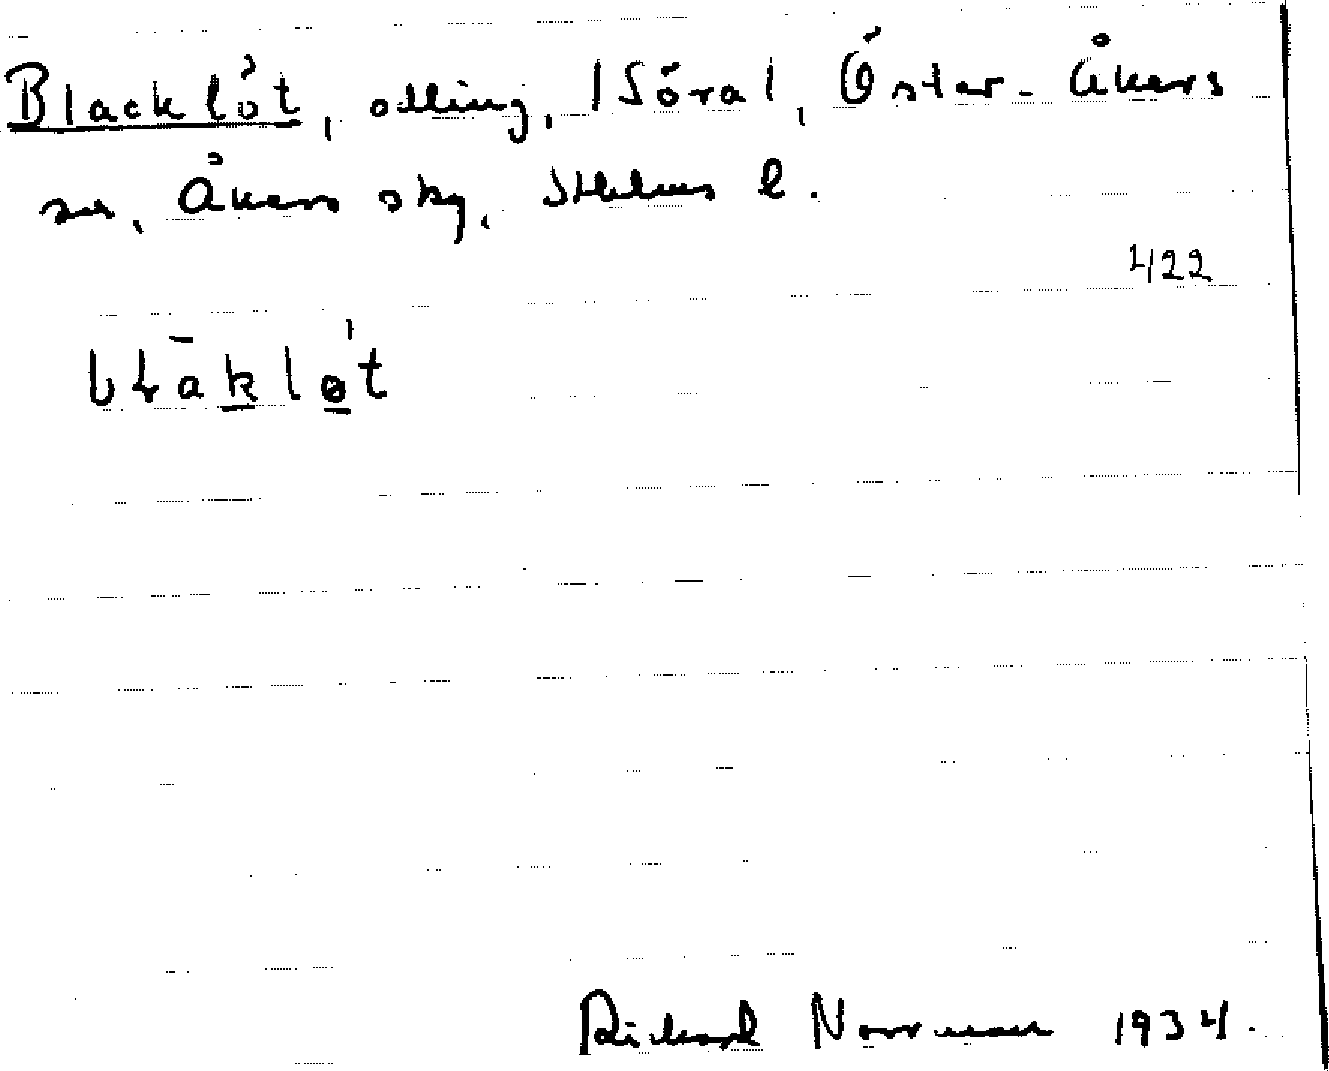 Blacklöt, odling, |Söra|, Öster-Åkers
sn, Åkers sky, Sthlms l.
422
Rickard Norrman 1934.